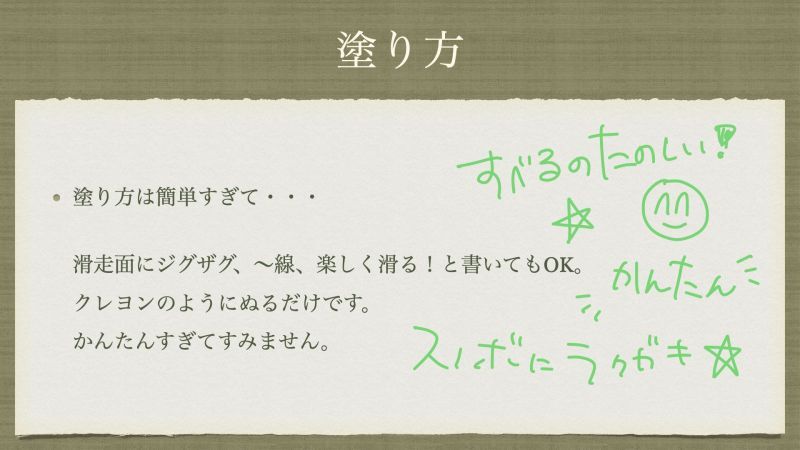 塗り方
塗り方は簡単すぎて・・・
滑走面にジグザグ、〜線、楽しく滑る！と書いてもOK。
クレヨンのようにぬるだけです。
かんたんすぎてすみません。
すべるのたのしい!
かんたん
スノボにラクガキ